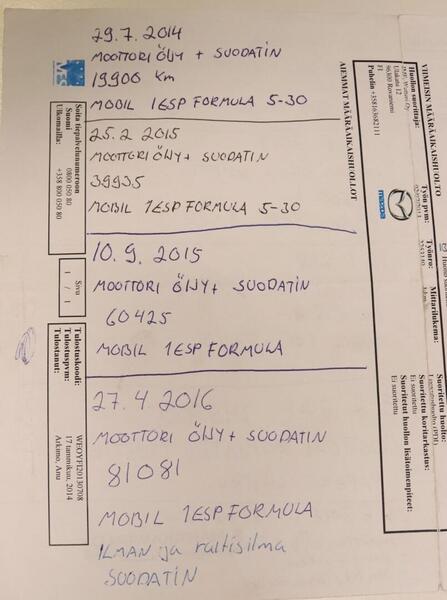 29.7.2014
MOOTTORI ÖLJY + SUODATIN
19900 Km
MOBIL 1 ESP FORMULA 5-30
25.2 2015
MOOTTORI ÖLJY + SUODATIN
39935
MOBIL 1 ESP FORMULA 5-30
10.9.2015
MOOTTORI ÖLJY + SUODATIN
60425
MOBIL 1 ESP FORMULA
27.4 2016
MOOTTORI ÖLJY + SUODATIN
81081
MOBIL 1 ESP FORMULA
ILMAN ja raitisilma
SUODATIN
Soita tiepalvelunumeroon
Suomi 0800 050 80
Ulkomailla: +358 800 050 80
Sivu
1 / 1
Tulostuskoodi: WEOYFI20130708
Tulostuspvm: 17 tammikuu, 2014
Tulostanut: Arkimo, Anu
VIIMEISIN MÄÄRÄAIKAISHUOLTO
Huollon suorittaja:
96300 Rovaniemi
FI
Puhelin +358163682111
Työn pvm:
Työnro:
Mittarilukema:
mazda
Suoritettu huolto:
Suoritettu koritarkastus:
Ei suoritettu
Suoritetut huollon lisätoimenpiteet:
Ei suoritettu
AIEMMAT MÄÄRÄAIKAISHUOLLOT